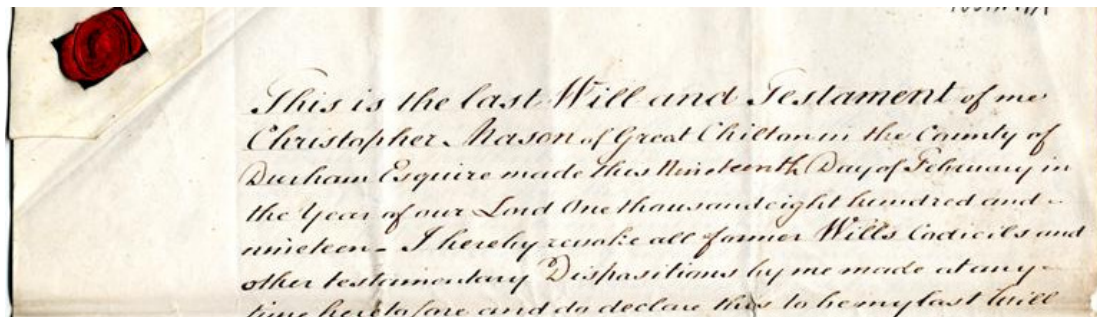 This is the last Will and Testament of me
Christopher Mason of Great Chilton in the County of
Durham Esquire made this Nineteenth Day of February in
the Year of our Lord One thousand eight hundred and
nineteen - I hereby revoke all former Wills Codicils and
other testamentary Dispositions by me made at any
time heretofore and do declare this to be my last Will